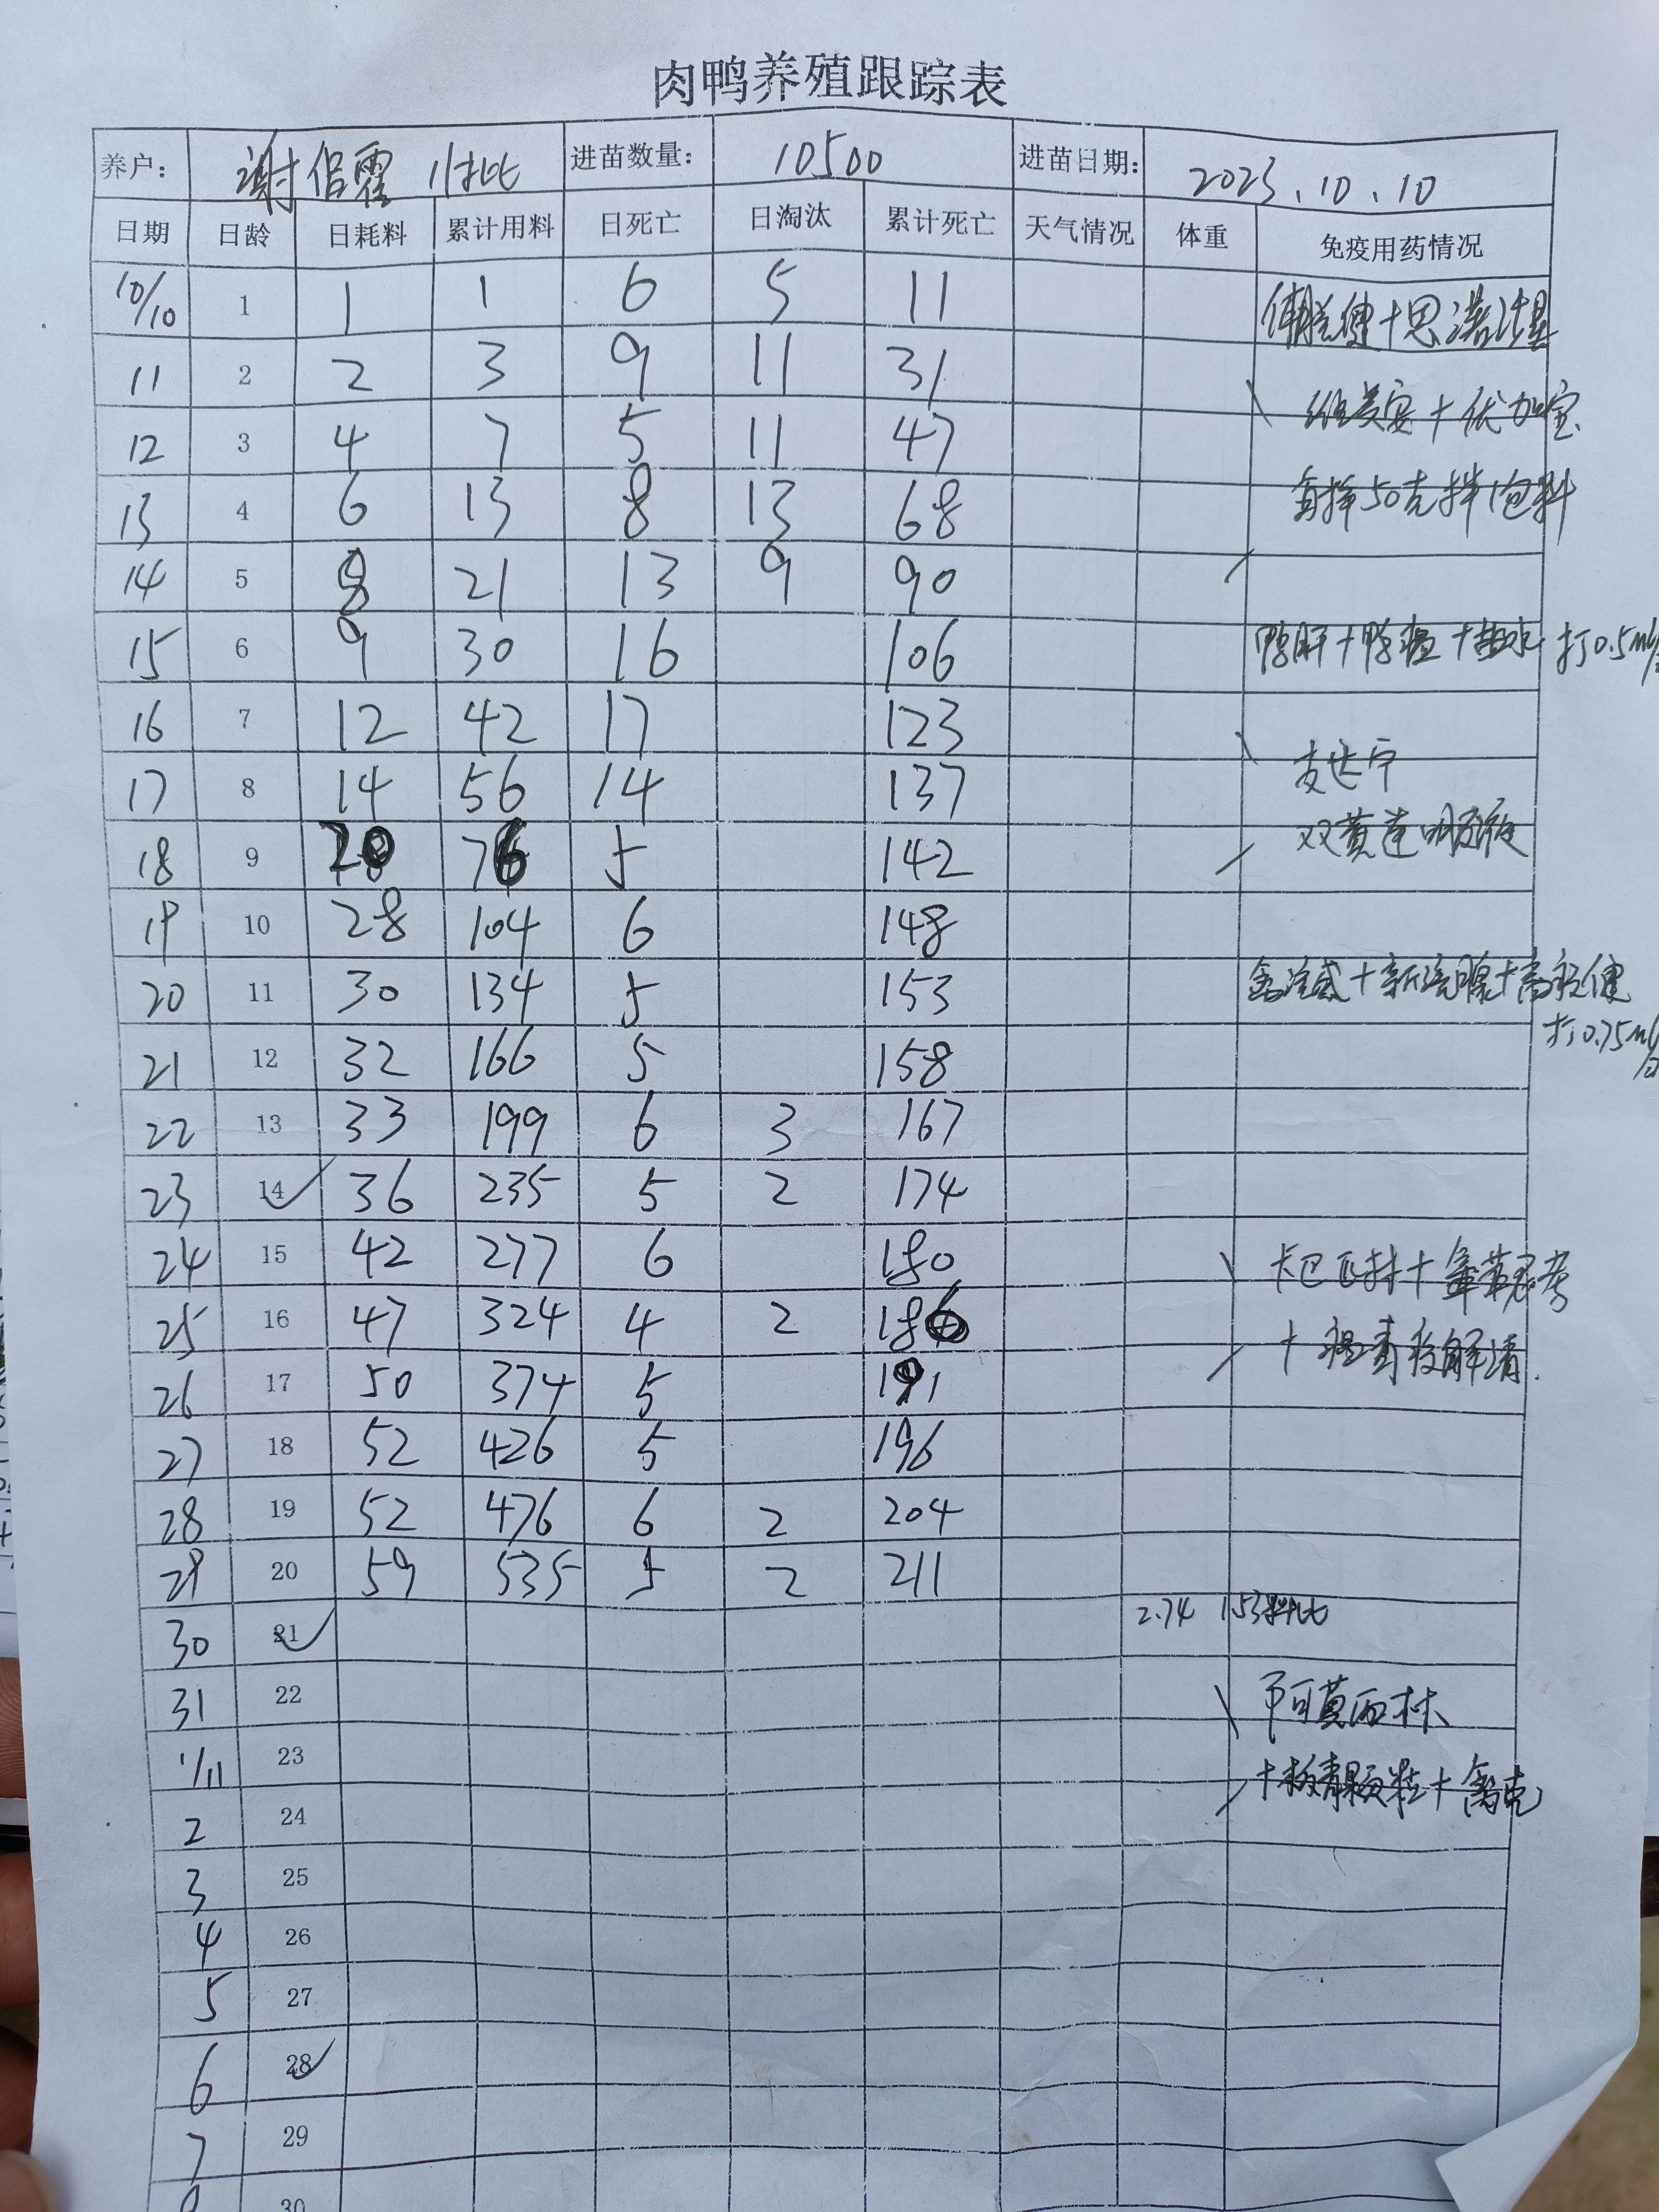 肉鸭养殖跟踪表
养户： 谢 11批 进苗数量： 10500 进苗日期： 2023.10.10
日期 日龄 日耗料 累计用料 日死亡 日淘汰 累计死亡 天气情况 体重 免疫用药情况
10/10 1 1 1 6 5 11
11 2 2 3 9 11 31
12 3 4 7 5 11 47 +优加宝
13 4 6 13 8 13 68 每 50克拌1包料
14 5 8 21 13 9 90
15 6 9 30 16 106 鸭肝+鸭瘟+盐水 打0.5ml/
16 7 12 42 17 123
17 8 14 56 14 137
18 9 20 76 5 142 双黄连口服液
19 10 28 104 6 148
20 11 30 134 5 153
21 12 32 166 5 158 打0.75ml/
22 13 33 199 6 3 167
23 14 36 235 5 2 174
24 15 42 277 6 180 卡巴匹林+
25 16 47 324 4 2 186
26 17 50 374 5 191
27 18 52 426 5 196
28 19 52 476 6 2 204
29 20 59 535 5 2 211
30 21 2.74 1.53料比
31 22 阿莫西林
1/11 23 +板青颗粒+禽克
2 24
3 25
4 26
5 27
6 28
7 29
30